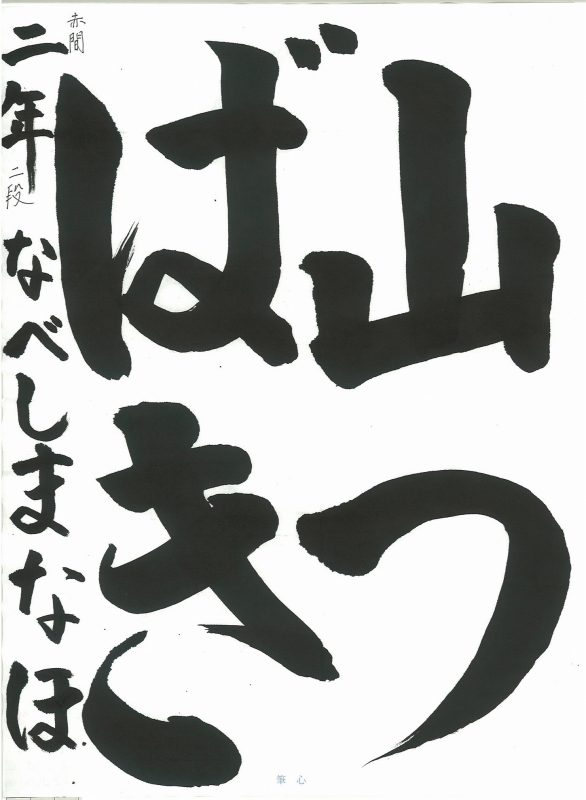 山つ
ばき
赤間
二年 二段 なべしまなほ
心筆